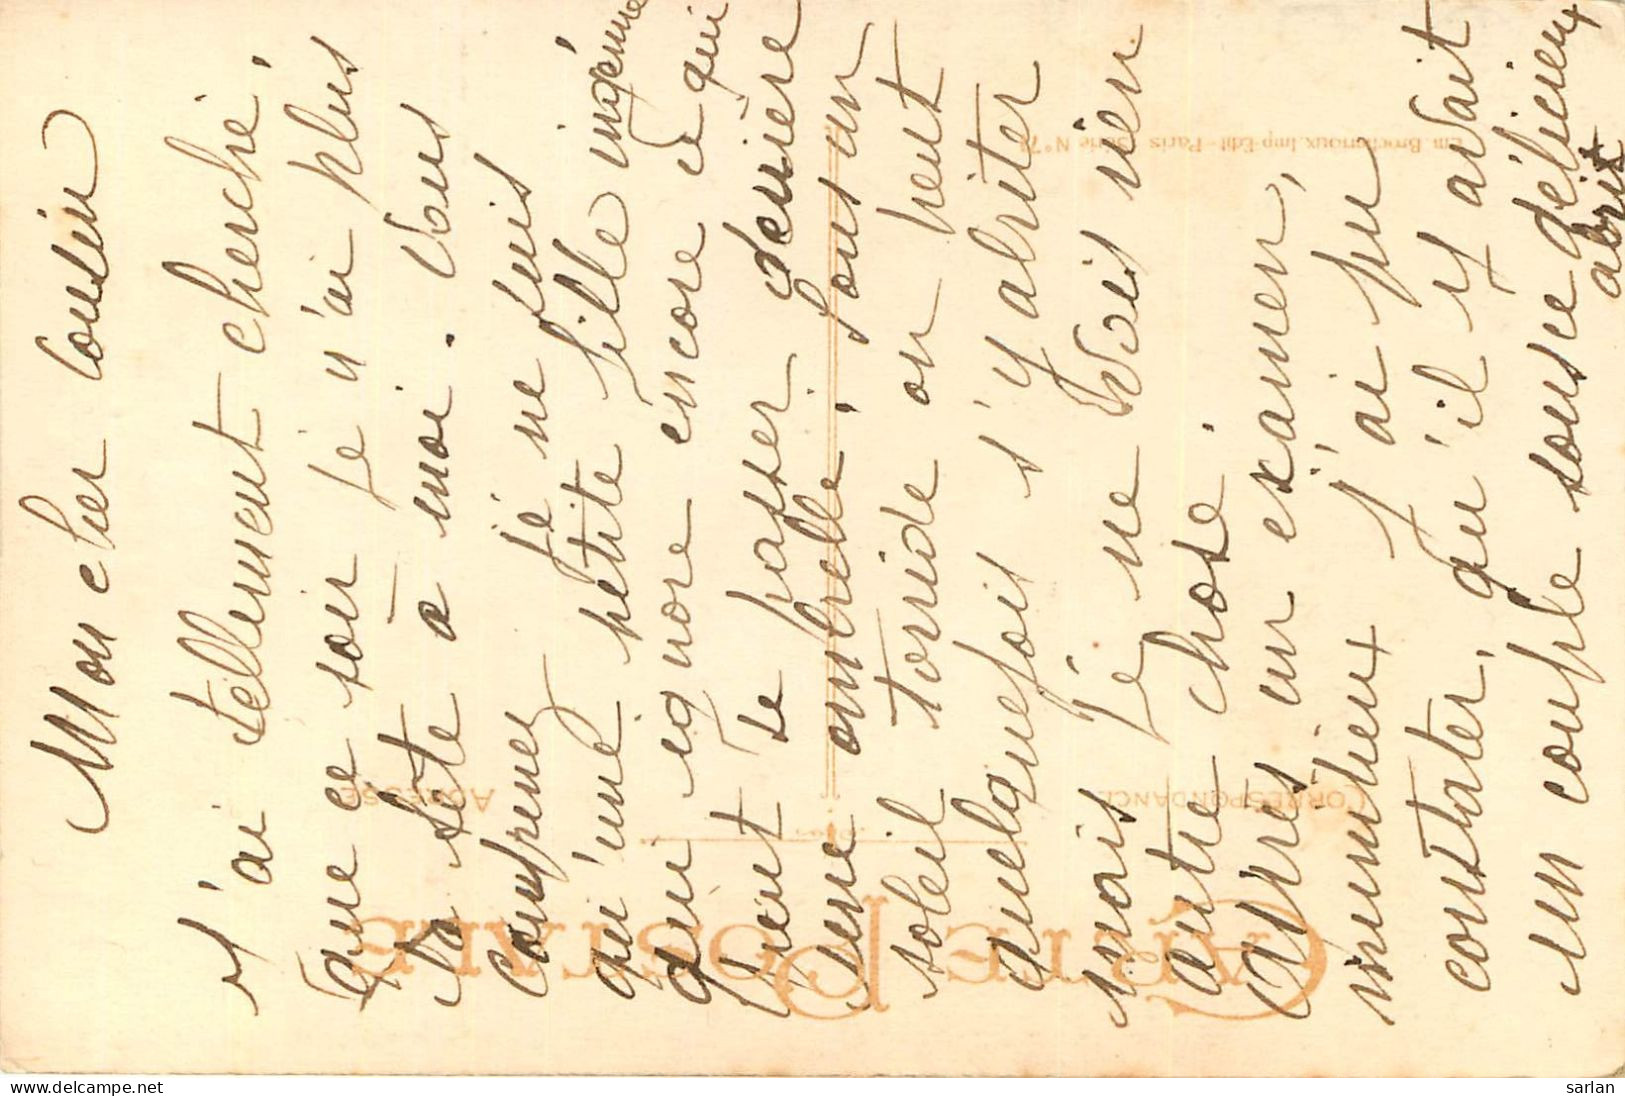 Mon cher Cousin
J'ai tellement cherché,
que ce soir je n'ai plus
la tête à moi. Vous
comprenez je ne suis
qu'une petite fille ingénue
qui ignore encore ce qui
peut se passer derrière
une ombrelle; sous un
soleil torride on peut
quelquefois s'y abriter
mais je ne vois rien
autre chose.
Après un examen,
minutieux j'ai pu
constater, qu'il y avait
un couple sous ce délicieux
abri
CARTE POSTALE
CORRESPONDANCE
ADRESSE
Em. Brocherioux, Imp-Edit-Paris Série N° 7
delcampe.net
sarlan